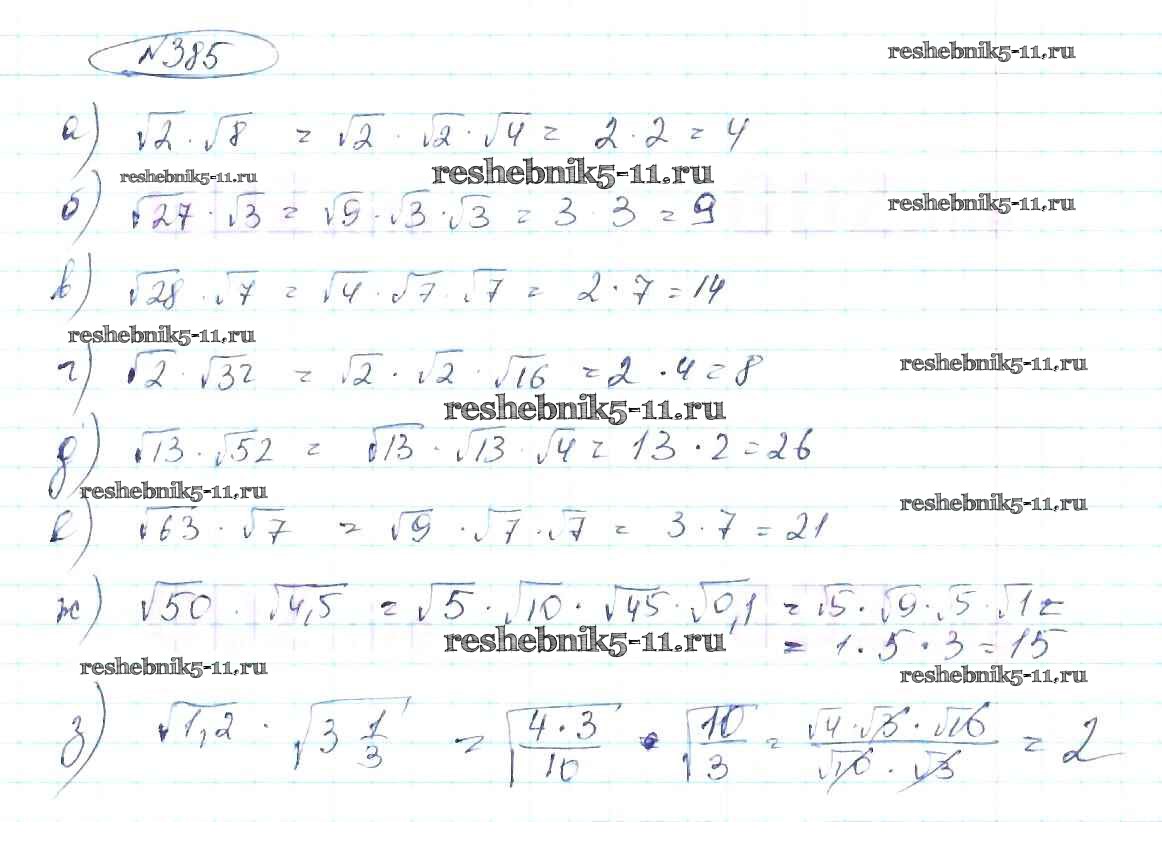 №385
reshebnik5-11.ru
а) √2 · √8 = √2 · √2 · √4 = 2 · 2 = 4
reshebnik5-11.ru
reshebnik5-11.ru
б) √27 · √3 = √9 · √3 · √3 = 3 · 3 = 9
reshebnik5-11.ru
в) √28 · √7 = √4 · √7 · √7 = 2 · 7 = 14
reshebnik5-11.ru
г) √2 · √32 = √2 · √2 · √16 = 2 · 4 = 8
reshebnik5-11.ru
reshebnik5-11.ru
д) √13 · √52 = √13 · √13 · √4 = 13 · 2 = 26
reshebnik5-11.ru
reshebnik5-11.ru
е) √63 · √7 = √9 · √7 · √7 = 3 · 7 = 21
ж) √50 · √4,5 = √5 · √10 · √45 · √0,1 = √5 · √9 · √5 · √1 =
reshebnik5-11.ru
= 1 · 5 · 3 = 15
reshebnik5-11.ru
reshebnik5-11.ru
з) √1,2 · √3 1/3 = √4·3/10 · √10/3 = √4 · √3 · √10 / √10 · √3 = 2